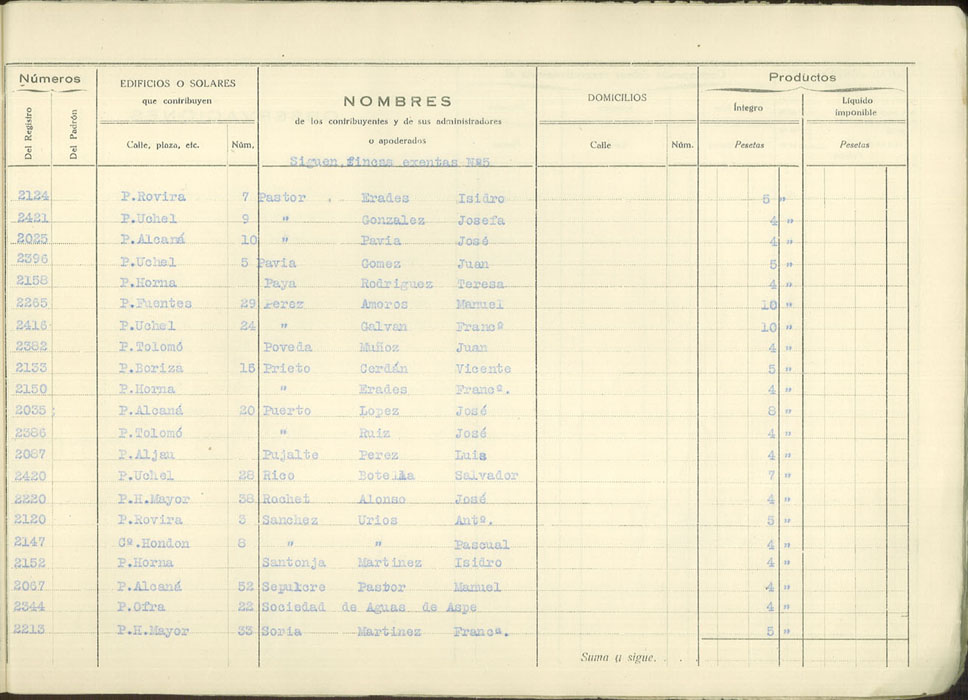 Números
EDIFICIOS O SOLARES
que contribuyen
NOMBRES
de los contribuyentes y de sus administradores
o apoderados
DOMICILIOS
Productos
Íntegro
Líquido
imponible
Del Registro
Del Padrón
Calle, plaza, etc. Núm.
Calle Núm.
Pesetas Pesetas
Siguen fincas exentas Nº5
2124 P.Rovira 7 Pastor Erades Isidro 5 "
2421 P.Uchel 9 " Gonzalez Josefa 4 "
2025 P.Alcaná 10 " Pavia José 4 "
2396 P.Uchel 5 Pavia Gomez Juan 5 "
2158 P.Horna Paya Rodriguez Teresa 4 "
2265 P.Fuentes 29 Perez Amoros Manuel 10 "
2416 P.Uchel 24 " Galvan Francº 10 "
2382 P.Tolomó Poveda Muñoz Juan 4 "
2133 P.Boriza 15 Prieto Cerdán Vicente 5 "
2150 P.Horna " Erades Francº. 4 "
2035 P.Alcaná 20 Puerto Lopez José 8 "
2386 P.Tolomó " Ruiz José 4 "
2087 P.Aljau Pujalte Perez Luis 4 "
2420 P.Uchel 28 Rico Botella Salvador 7 "
2220 P.H.Mayor 38 Rochet Alonso José 4 "
2120 P.Rovira 3 Sanchez Urios Antº. 5 "
2147 Cº.Hondon 8 " " Pascual 4 "
2152 P.Horna Santonja Martinez Isidro 4 "
2067 P.Alcaná 52 Sepulcre Pastor Manuel 4 "
2344 P.Ofra 22 Sociedad de Aguas de Aspe 4 "
2213 P.H.Mayor 33 Soria Martinez Francª. 5 "
Suma a sigue. . . .